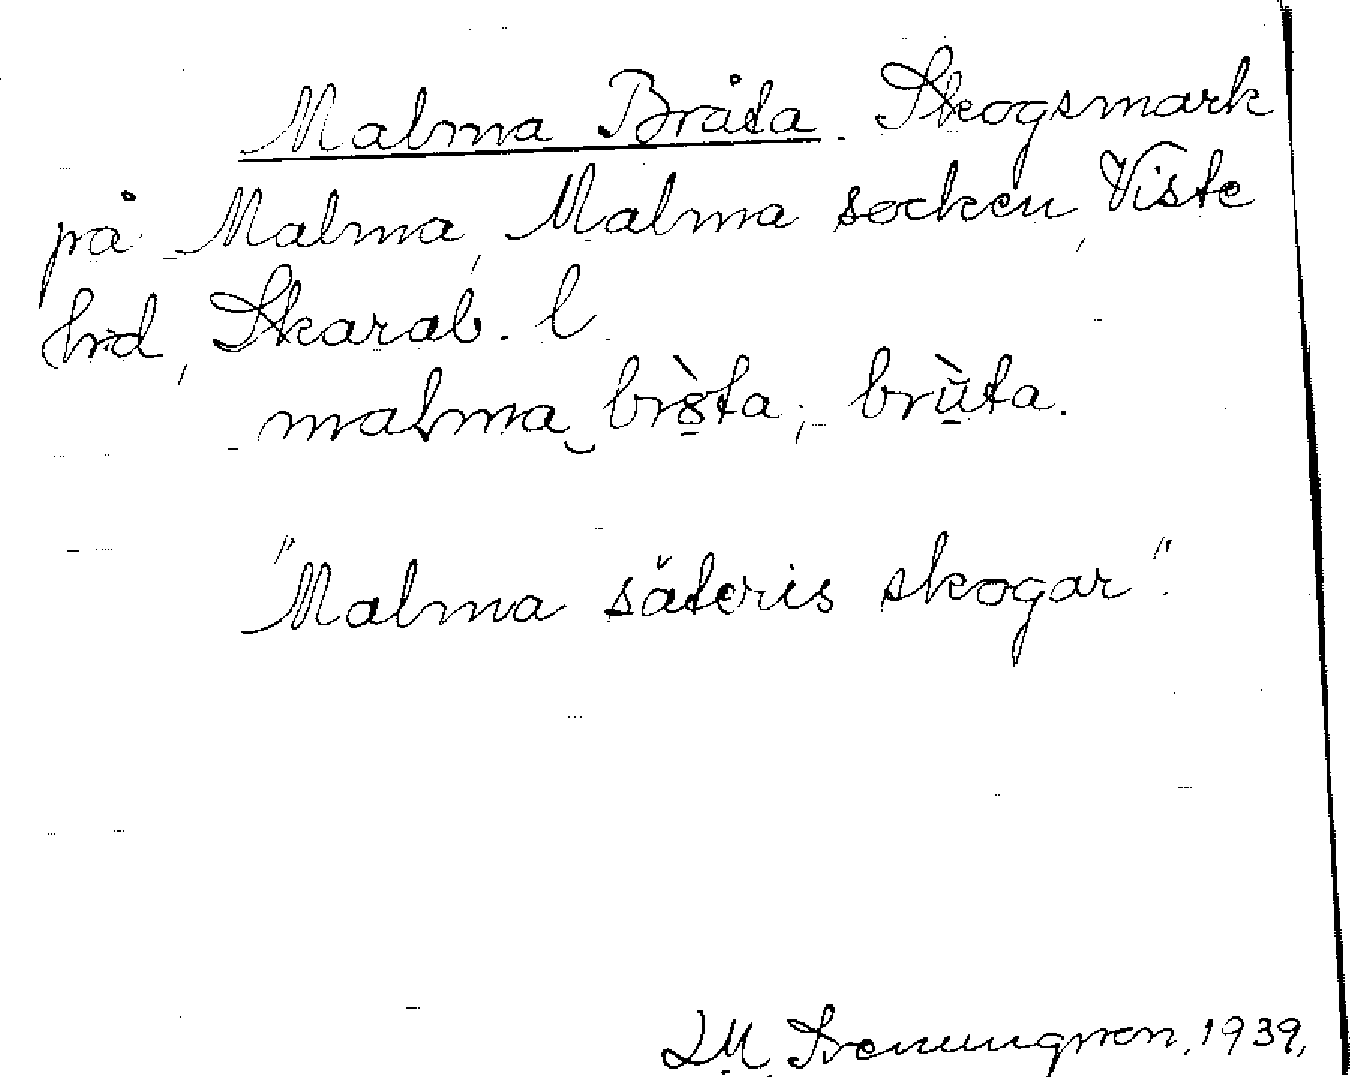 Malma Bråta. Skogsmark
på Malma, Malma socken, Viste
hrd, Skarab. l
malma brò̱ta; brù̱ta.
"Malma säteris skogar".
I.M. Svennungsson. 1939.